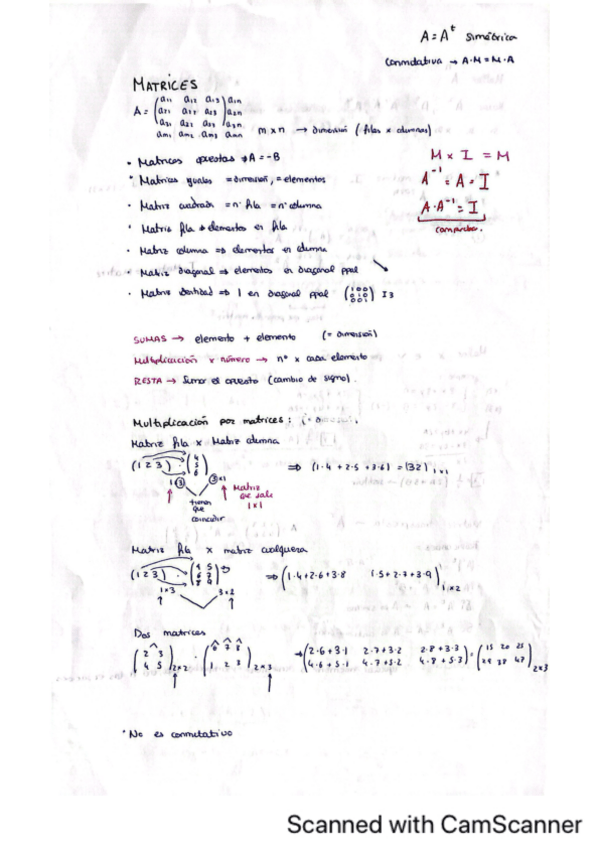 A = Aᵗ simétrica
conmutativa → A·M = M·A
MATRICES
A = (a11 a12 a13 a1n
a21 a22 a23 a2n
a31 a32 a33 a3n
am1 am2 am3 amn) m x n → dimensión (filas x columnas)
• Matrices opuestas → A = -B
M x I = M
• Matrices iguales = dimensión, = elementos
A⁻¹ = A = I
• Matriz cuadrada = nº fila = nº columna
A·A⁻¹ = I
• Matriz fila → elementos en fila
comprobar.
• Matriz columna ⇒ elementos en columna
• Matriz diagonal ⇒ elementos en diagonal ppal ↘
• Matriz identidad ⇒ 1 en diagonal ppal (1 0 0
0 1 0
0 0 1) I3
SUMAS → elemento + elemento (= dimensión)
Multiplicación x número → nº x cada elemento
RESTA → Sumar el opuesto (cambio de signo).
Multiplicación por matrices:
Matriz fila x Matriz columna
(1 2 3) · (4
5
6) ⇒ (1·4 + 2·5 + 3·6) = (32) 1x1
1 x 3 3 x 1
tienen que coincidir
Matriz que sale 1x1
Matriz fila x matriz cualquiera
(1 2 3) · (4 5
6 7
8 9) ⇒ (1·4+2·6+3·8 1·5+2·7+3·9) 1x2
1x3 3x2
Dos matrices
(2 3
4 5) 2x2 · (6 7 8
1 2 3) 2x3 → (2·6+3·1 2·7+3·2 2·8+3·3
4·6+5·1 4·7+5·2 4·8+5·3) = (15 20 25
29 38 47) 2x3
• No es conmutativo
Scanned with CamScanner